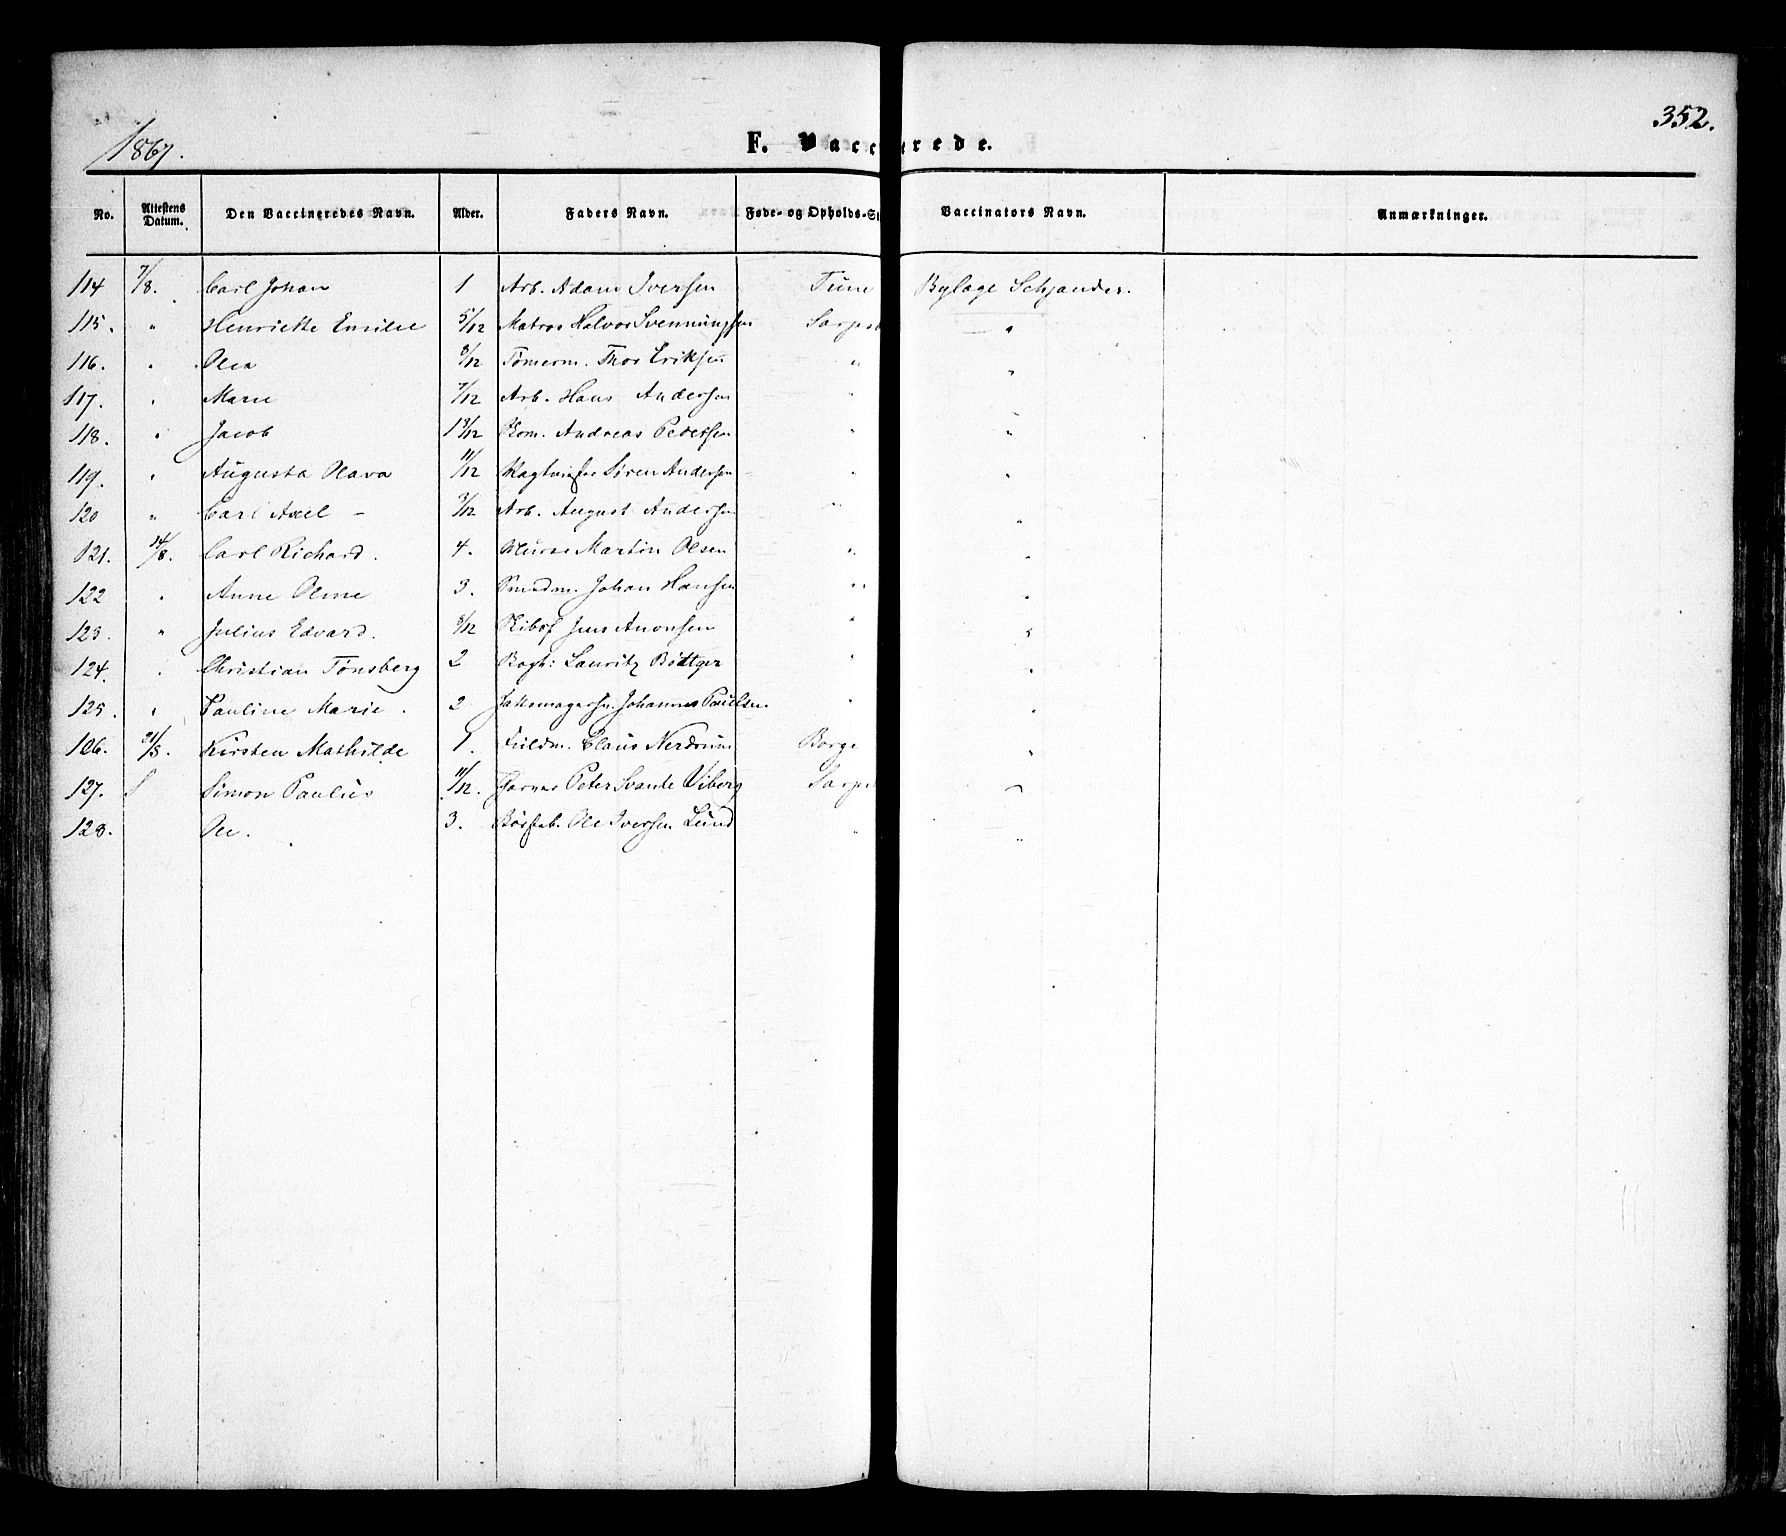 352.
1867.
F. Vacc rede.
No. Attestens Datum. Den Vaccineredes Navn. Alder. Faders Navn. Føde- og Opholds-St Vaccinators Navn. Anmærkninger.
114 7/8. Carl Johan 1 Arb. Adam Iversen Tune Bylæge Schjander.
115. " Henriette Emilie 5/12 Matros Halvor Svenningsen Sarpsb "
116. " Olea 8/12 Tømerm. Thor Eriksen " "
117. " Marie 7/12 Arb. Hans Andersen " "
118. " Jacob 1 3/12 Kom. Andreas Pedersen " "
119. " Augusta Olava 11/12 Søren Andersen " "
120 " Carl Axel - 3/12 Arb. August Andersen " "
121. 14/8. Carl Richard. 4. Murer Martin Olsen " "
122 " Anne Oline 3. Johan Hansen " "
123. " Julius Edvard. 8/12 Skibsf Jens Anonsen " "
124. " Christian Tønsberg 2 Bogh: Lauritz Bödtger " "
125. " Pauline Marie. 2 Johannes Paulsen " "
106. 21/8. Kirsten Mathilde 1. Fuldm. Claus Nerdrum Borge "
127. Simon Paulus 11/12. Peter Svante Viberg Sarpsb "
128. Ole. 3. Ole Iversen Lund " "